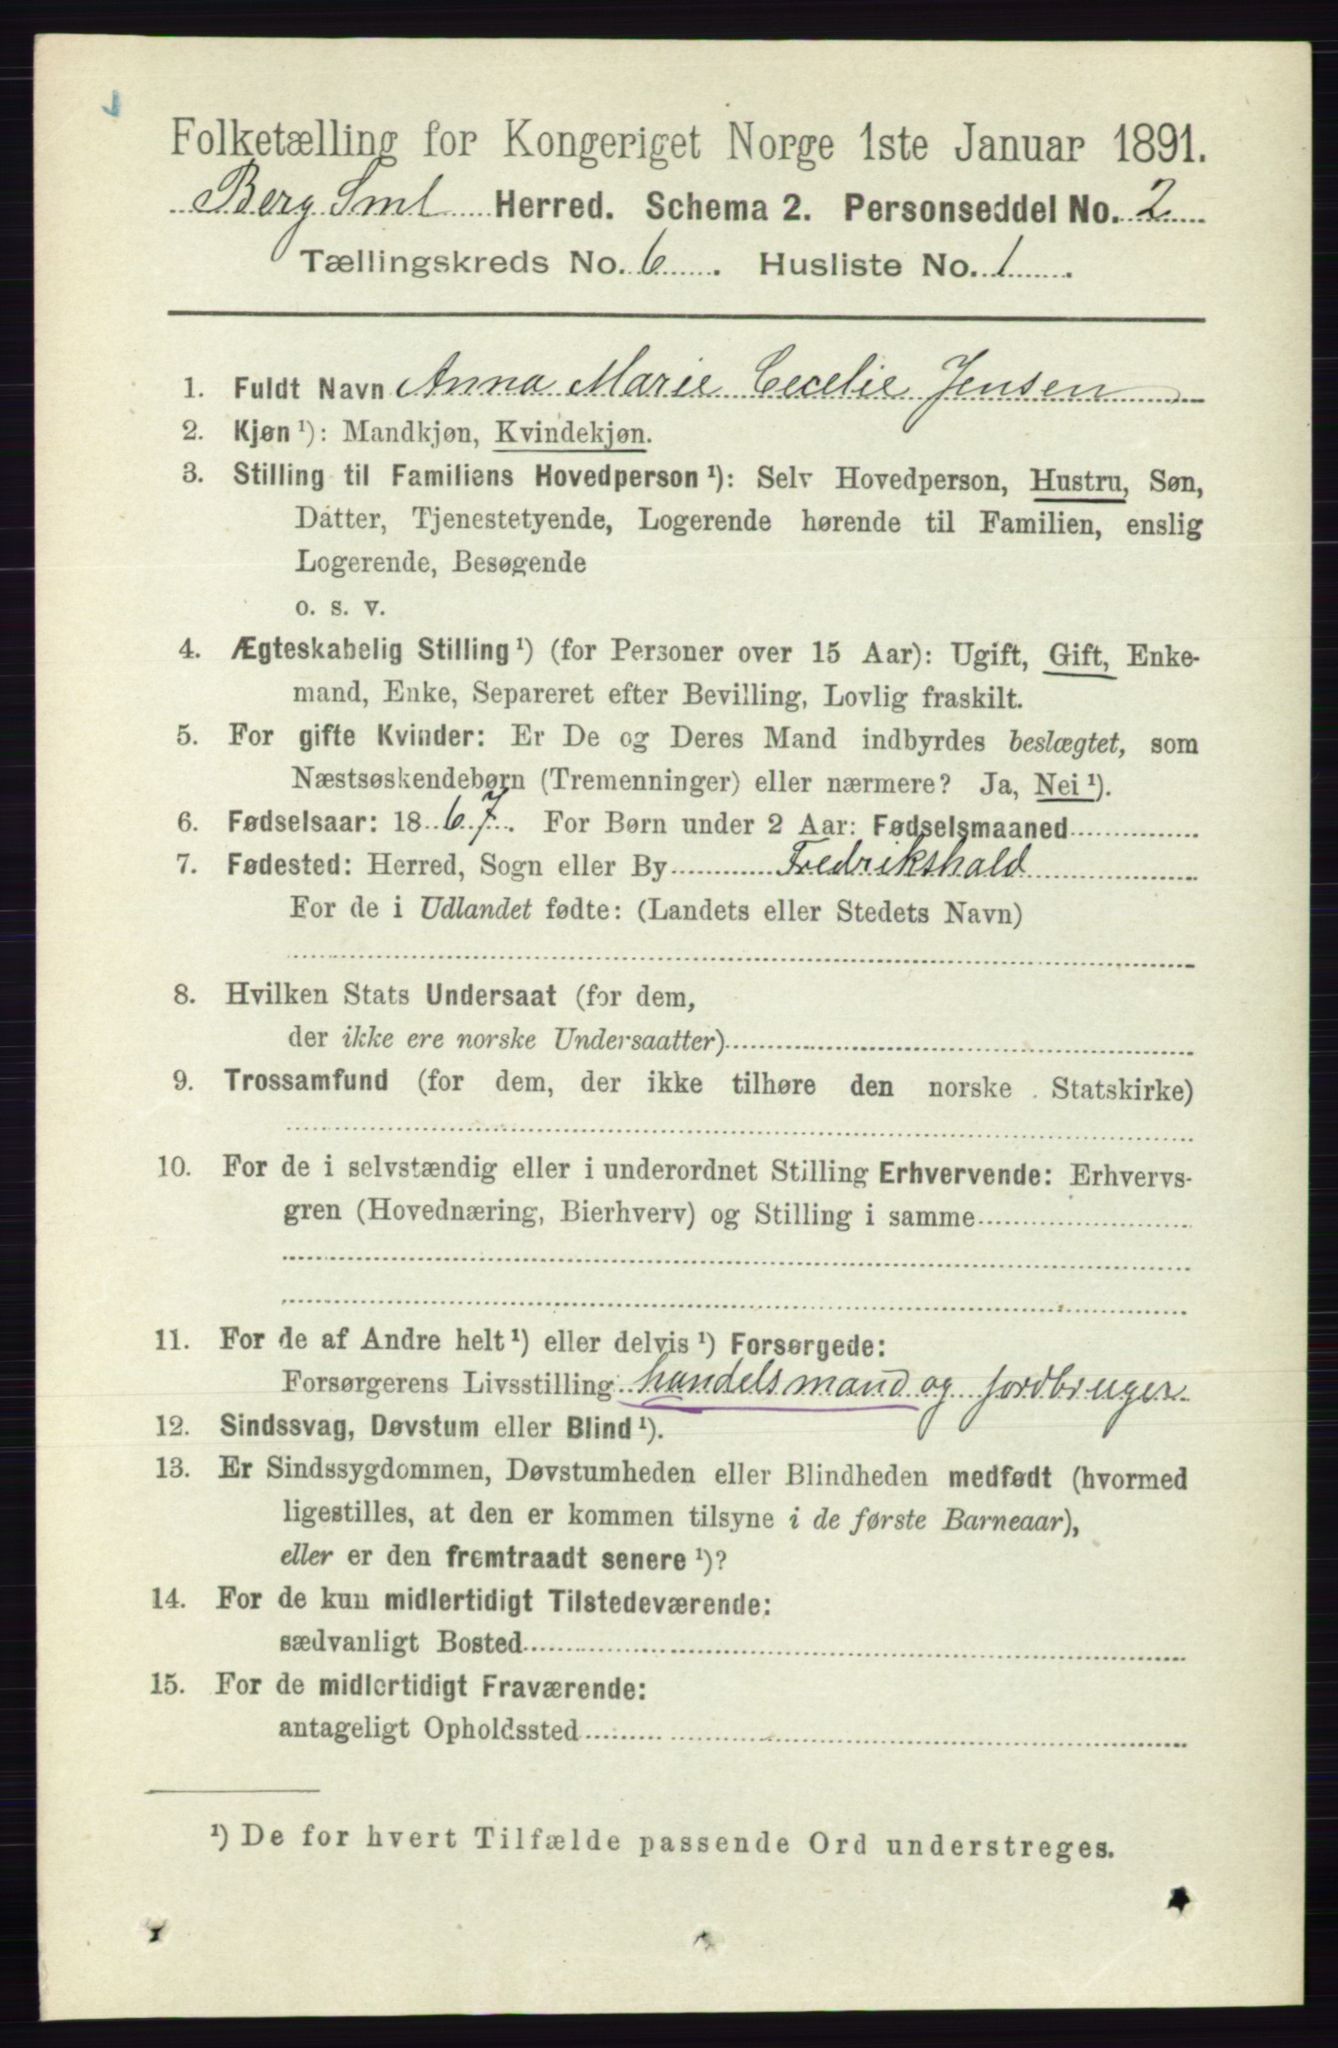 Folketælling for Kongeriget Norge 1ste Januar 1891.
Berg Sml Herred. Schema 2. Personseddel No. 2
Tællingskreds No. 6. Husliste No. 1.
1. Fuldt Navn Anna Marie Cecelie Jensen
2. Kjøn¹): Mandkjøn, Kvindekjøn.
3. Stilling til Familiens Hovedperson¹): Selv Hovedperson, Hustru, Søn,
Datter, Tjenestetyende, Logerende hørende til Familien, enslig
Logerende, Besøgende
o. s. v.
4. Ægteskabelig Stilling¹) (for Personer over 15 Aar): Ugift, Gift, Enke-
mand, Enke, Separeret efter Bevilling, Lovlig fraskilt.
5. For gifte Kvinder: Er De og Deres Mand indbyrdes beslægtet, som
Næstsøskendebørn (Tremenninger) eller nærmere? Ja, Nei¹).
6. Fødselsaar: 1867. For Børn under 2 Aar: Fødselsmaaned
7. Fødested: Herred, Sogn eller By Fredrikshald
For de i Udlandet fødte: (Landets eller Stedets Navn)
8. Hvilken Stats Undersaat (for dem,
der ikke ere norske Undersaatter)
9. Trossamfund (for dem, der ikke tilhøre den norske Statskirke)
10. For de i selvstændig eller i underordnet Stilling Erhvervende: Erhvervs-
gren (Hovednæring, Bierhverv) og Stilling i samme
11. For de af Andre helt¹) eller delvis¹) Forsørgede:
Forsørgerens Livsstilling handelsmand og jordbruger
12. Sindssvag, Døvstum eller Blind¹).
13. Er Sindssygdommen, Døvstumheden eller Blindheden medfødt (hvormed
ligestilles, at den er kommen tilsyne i de første Barneaar),
eller er den fremtraadt senere¹)?
14. For de kun midlertidigt Tilstedeværende:
sædvanligt Bosted
15. For de midlertidigt Fraværende:
antageligt Opholdssted
¹) De for hvert Tilfælde passende Ord understreges.